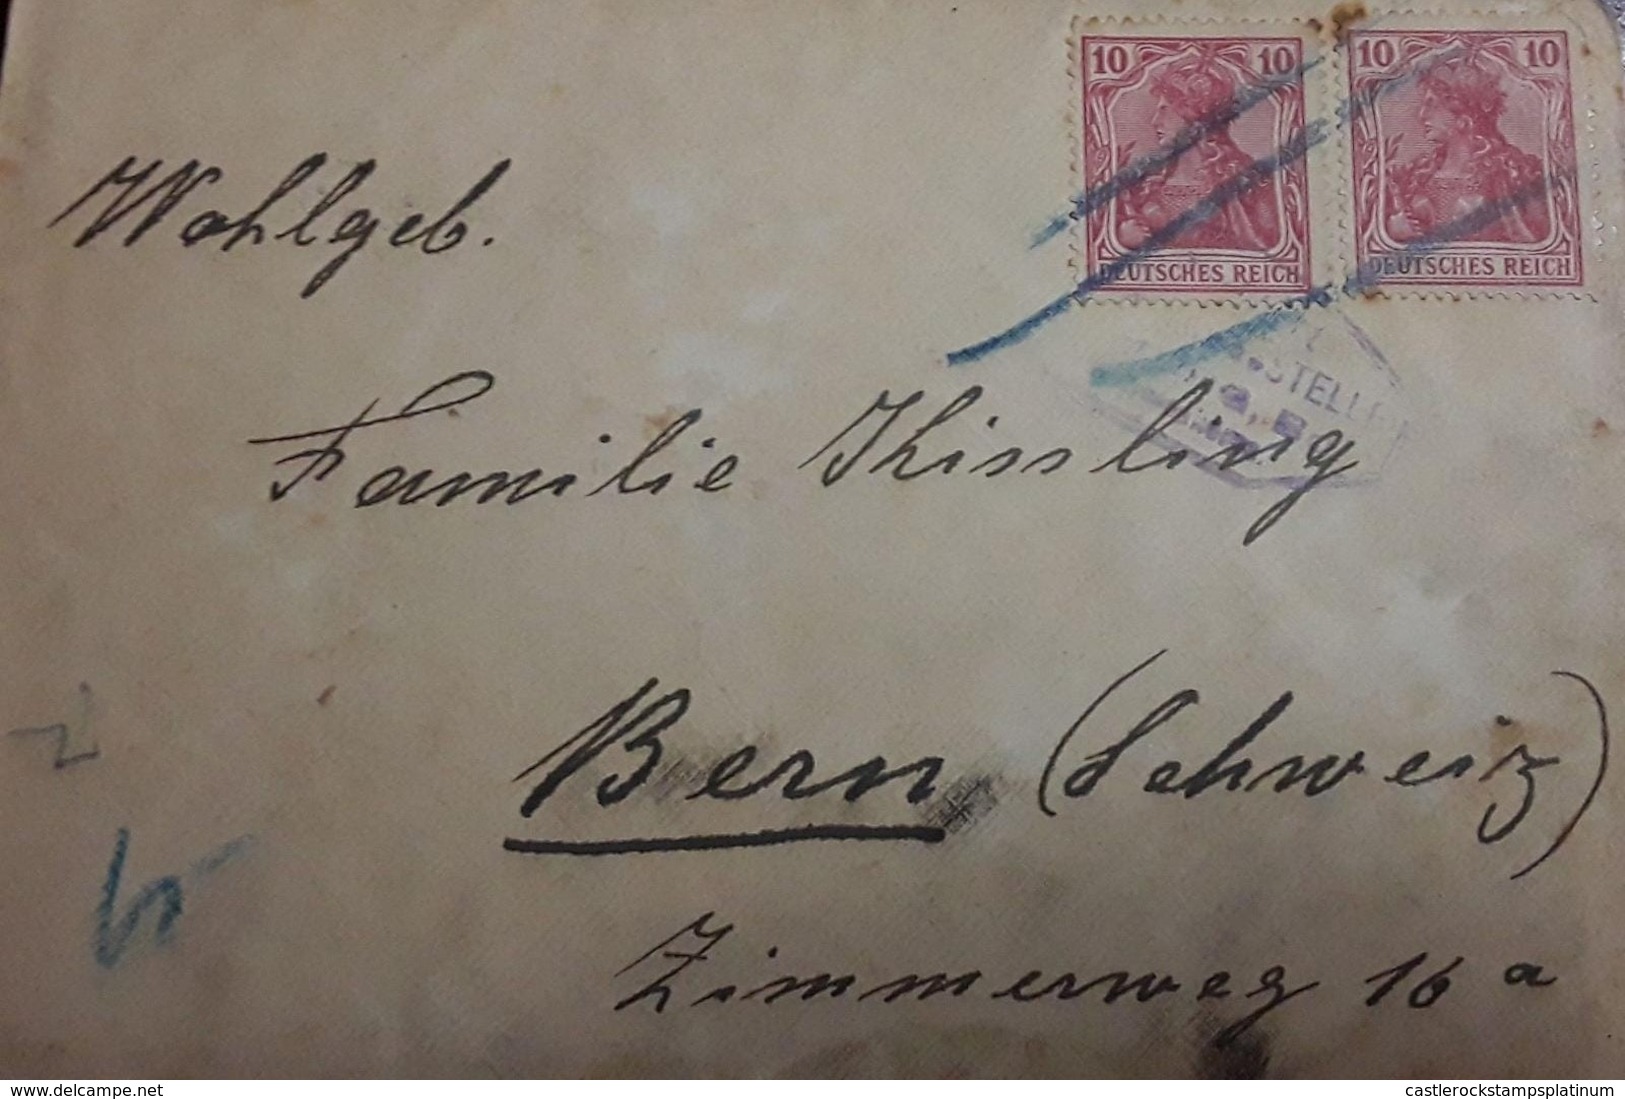 10 10 10 10
DEUTSCHES REICH DEUTSCHES REICH
Wohlgeb.
Familie Kissling
Bern (Schweiz)
Zimmerweg 16 a
www.delcampe.net castlerockstampsplatinum